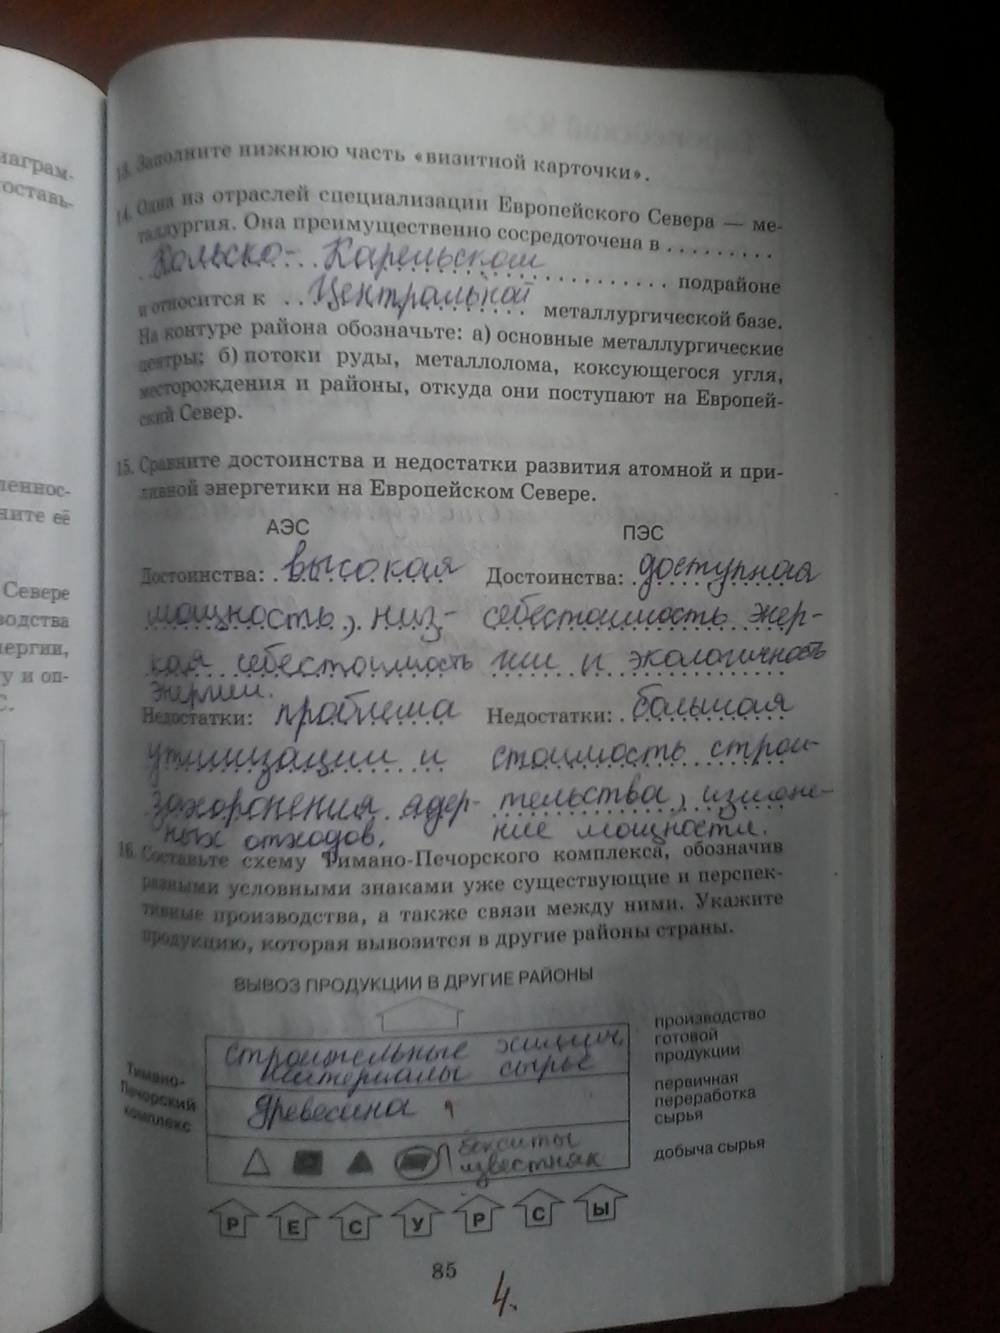 награм-
оставь-
леннос-
ните её
Севере
водства
нергии,
у и оп-
С.
13. Заполните нижнюю часть «визитной карточки».
14. Одна из отраслей специализации Европейского Севера — ме-
таллургия. Она преимущественно сосредоточена в
Кольско-Карельском подрайоне
и относится к Центральной металлургической базе.
На контуре района обозначьте: а) основные металлургические
центры; б) потоки руды, металлолома, коксующегося угля,
месторождения и районы, откуда они поступают на Европей-
ский Север.
15. Сравните достоинства и недостатки развития атомной и при-
ливной энергетики на Европейском Севере.
АЭС
Достоинства: высокая
мощность, низ-
кая себестоимость
энергии.
Недостатки: проблема
утилизации и
захоронения ядер-
ных отходов.
ПЭС
Достоинства: доступная
себестоимость энер-
гии и экологичность
Недостатки: большая
стоимость строи-
тельства, измене-
ние мощности.
16. Составьте схему Тимано-Печорского комплекса, обозначив
разными условными знаками уже существующие и перспек-
тивные производства, а также связи между ними. Укажите
продукцию, которая вывозится в другие районы страны.
ВЫВОЗ ПРОДУКЦИИ В ДРУГИЕ РАЙОНЫ
Тимано-
Печорский
комплекс
строительные химич.
материалы сырье
производство
готовой
продукции
древесина
первичная
переработка
сырья
бокситы
известняк
добыча сырья
Р Е С У Р С Ы
85
4.